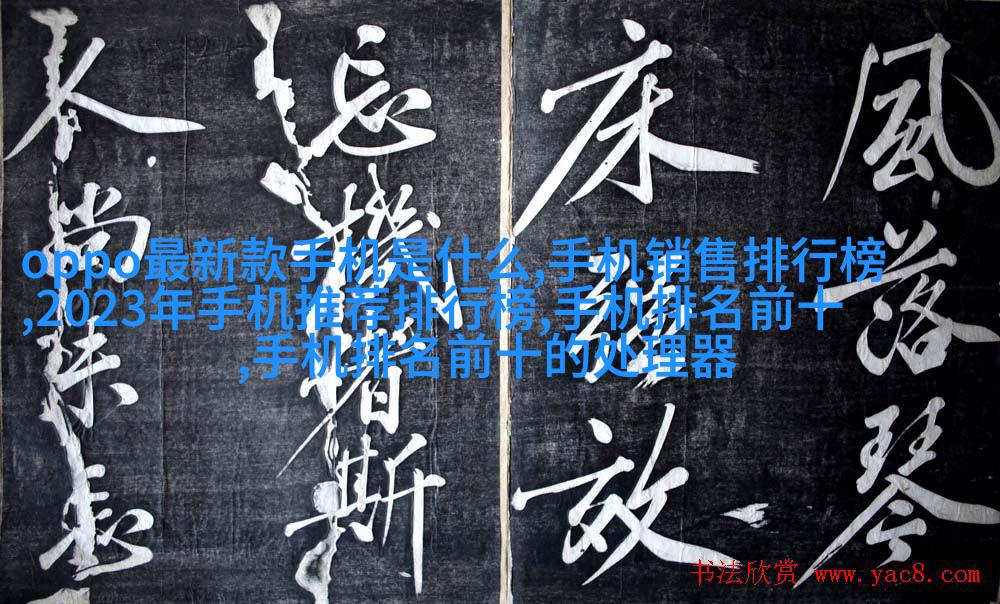 風落琴
床
忘機者斯
尚
oppo最新款手机是什么,手机销售排行榜
,2023年手机推荐排行榜,手机排名前十
,手机排名前十的处理器
书法欣赏 www.yac8.com